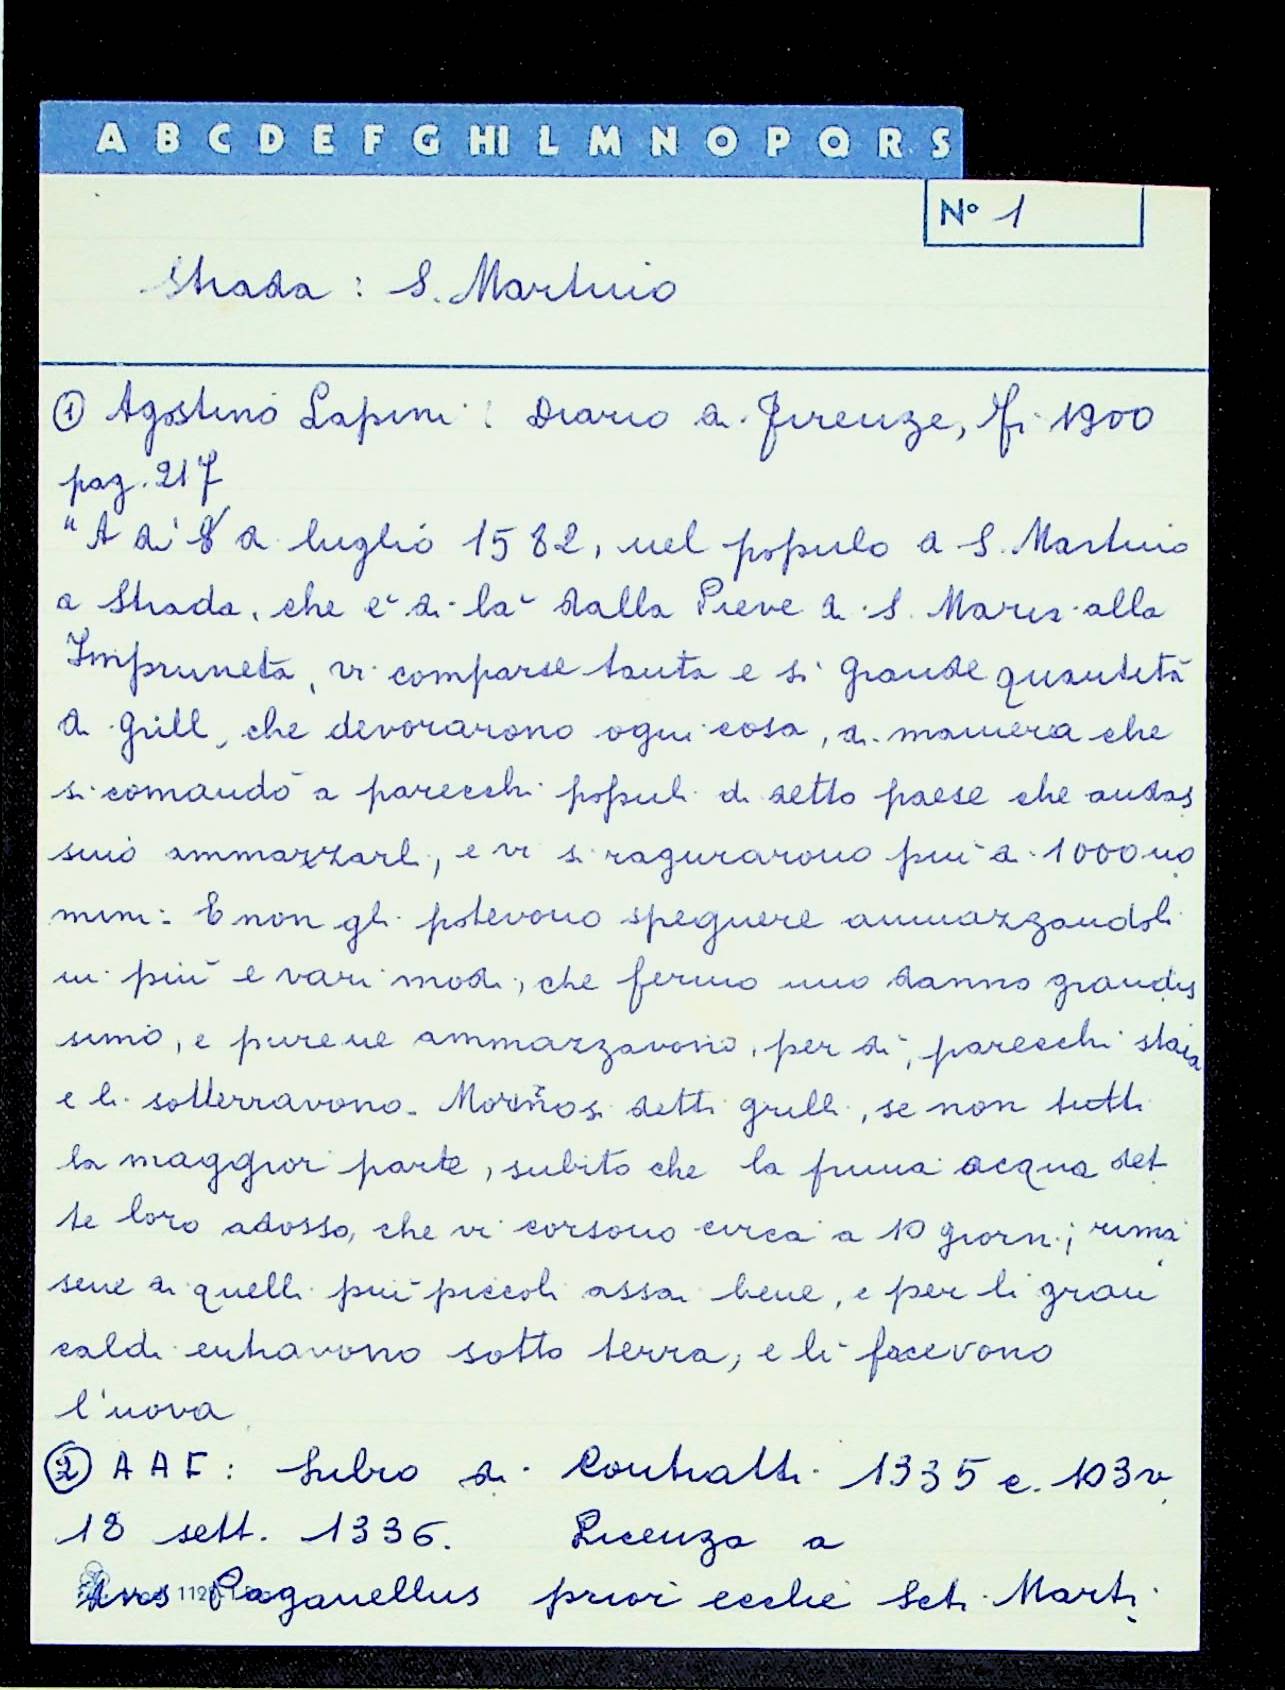 A B C D E F G HI L M N O P Q R S
N° 1
Strada : S. Martino
① Agostino Lapini : Diario di Firenze, Fi 1900
pag. 217
"A dì 8 di luglio 1582, nel populo di S. Martino
a Strada, che è di là dalla Pieve di S. Maria alla
Impruneta, vi comparse tanta e si grande quantità
di grilli, che devorarono ogni cosa, di maniera che
si comandò a parecchi populi di detto paese che andas
sino ammazzarli, e vi si ragurarono più di 1000 uo
mini: E non gli potevono spegnere ammazzandoli
in più e vari modi, che ferno uno danno grandis
simo, e pure ne ammazzavono, per dì, parecchi staia
e li sotterravono. Morirnosi detti grilli, se non tutti
la maggior parte, subito che la prima acqua det
te loro adosso, che vi corsono circa a 10 giorni; rima
sene di quelli più piccoli assai bene, e per li gran
caldi entravono sotto terra, e lì facevono
l'uova
② A A F : Libro di Contratti 1335 c. 103v
18 sett. 1336. Licenza a
112
Paganellus priori ecclie Scti Marti